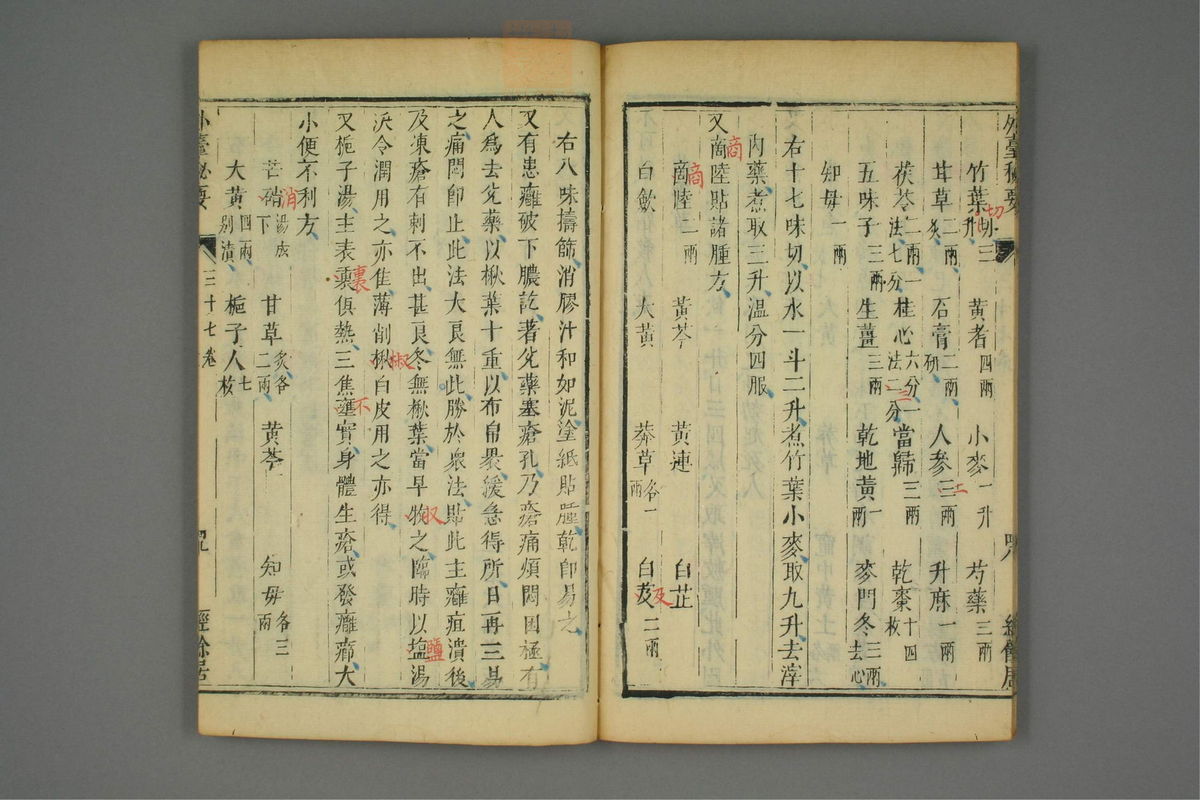 外臺秘要
竹葉切三升 黃者四兩 小麥一升 芍藥三兩
甘草二兩炙 石膏二兩研 人參三兩 升麻一兩
茯苓二兩一法七分 桂心六分一法二分 當歸二兩 乾棗十四枚
五味子三兩 生薑三兩 乾地黃一兩 麥門冬三兩去心
知母一兩
右十七味切以水一斗二升煮竹葉小麥取九升去滓
內藥煮取三升溫分四服
又啇陸貼諸腫方
啇陸二兩 黃芩 黃連 白芷
白歛 大黃 莽草各一兩 白芨二兩
右八味擣篩消膠汁和如泥塗紙貼腫乾卽易之
又有患癰破下膿訖著兊藥塞瘡孔乃瘡痛煩悶困極有
人爲去兊藥以楸葉十重以布帛褁緩急得所日再三易
之痛悶卽止此法大良無此勝於衆法貼此主癰疽潰後
及凍瘡有刺不出甚良冬無楸葉當早物之臨時以塩湯
沃令潤用之亦佳薄削楸白皮用之亦得
又梔子湯主表裏俱熱三焦壅實身體生瘡或發癰癤大
小便不利方
芒硝湯成下 甘草二兩炙各 黃芩 知母各三兩
大黃四兩別漬 梔子人七枚
外臺秘要 三十七卷 經餘居
切
三
二
商
商
及
椒
収
鹽
裏
不
消